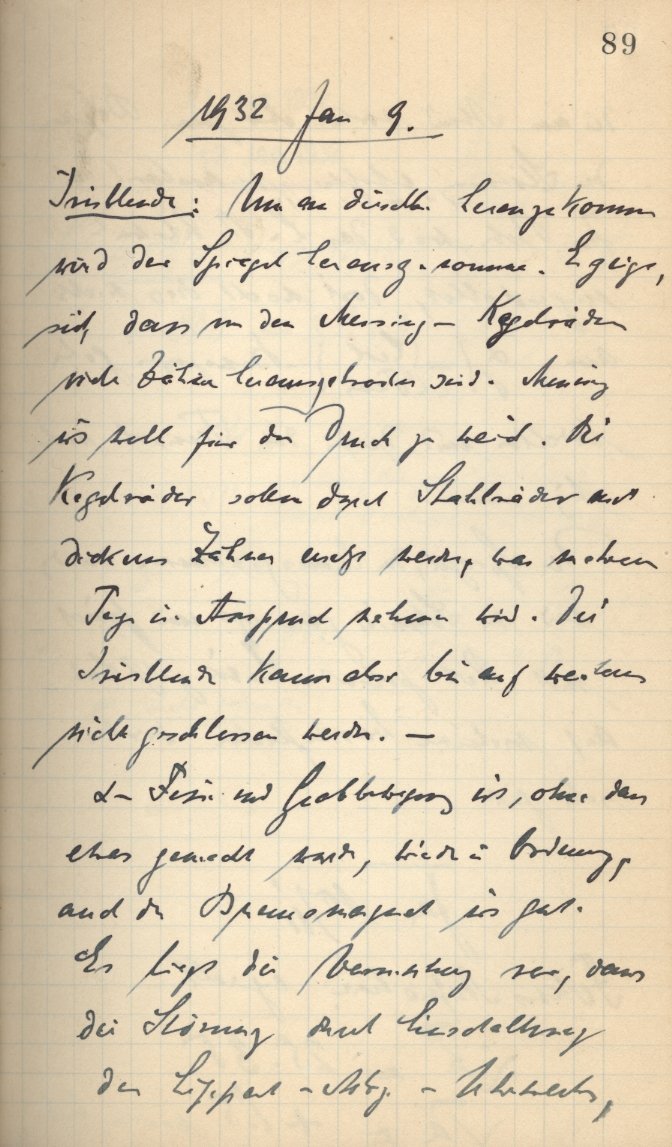 89
1932 Jan 9.
Irisblende: Um an dieselbe heranzukommen
wird der Spiegel herausgenommen. Es zeigt,
sich, dass an den Messing- Kegelrädern
viele Zähne herausgebrochen sind. Messing
ist viel für den Druck zu weich. Die
Kegelräder sollen durch Stahlräder mit
dickeren Zähnen ersetzt werden, was mehrere
Tage in Anspruch nehmen wird. Die
Irisblende kann also bis auf weiteres
nicht geschlossen werden. —
α- Fein und Grobbewegung ist, ohne dass
etwas gemacht wurde, wieder in Ordnung,
auch der Bremsmagnet ist gut.
Es liegt die Vermutung nahe, dass
die Störung durch Einschaltung
der